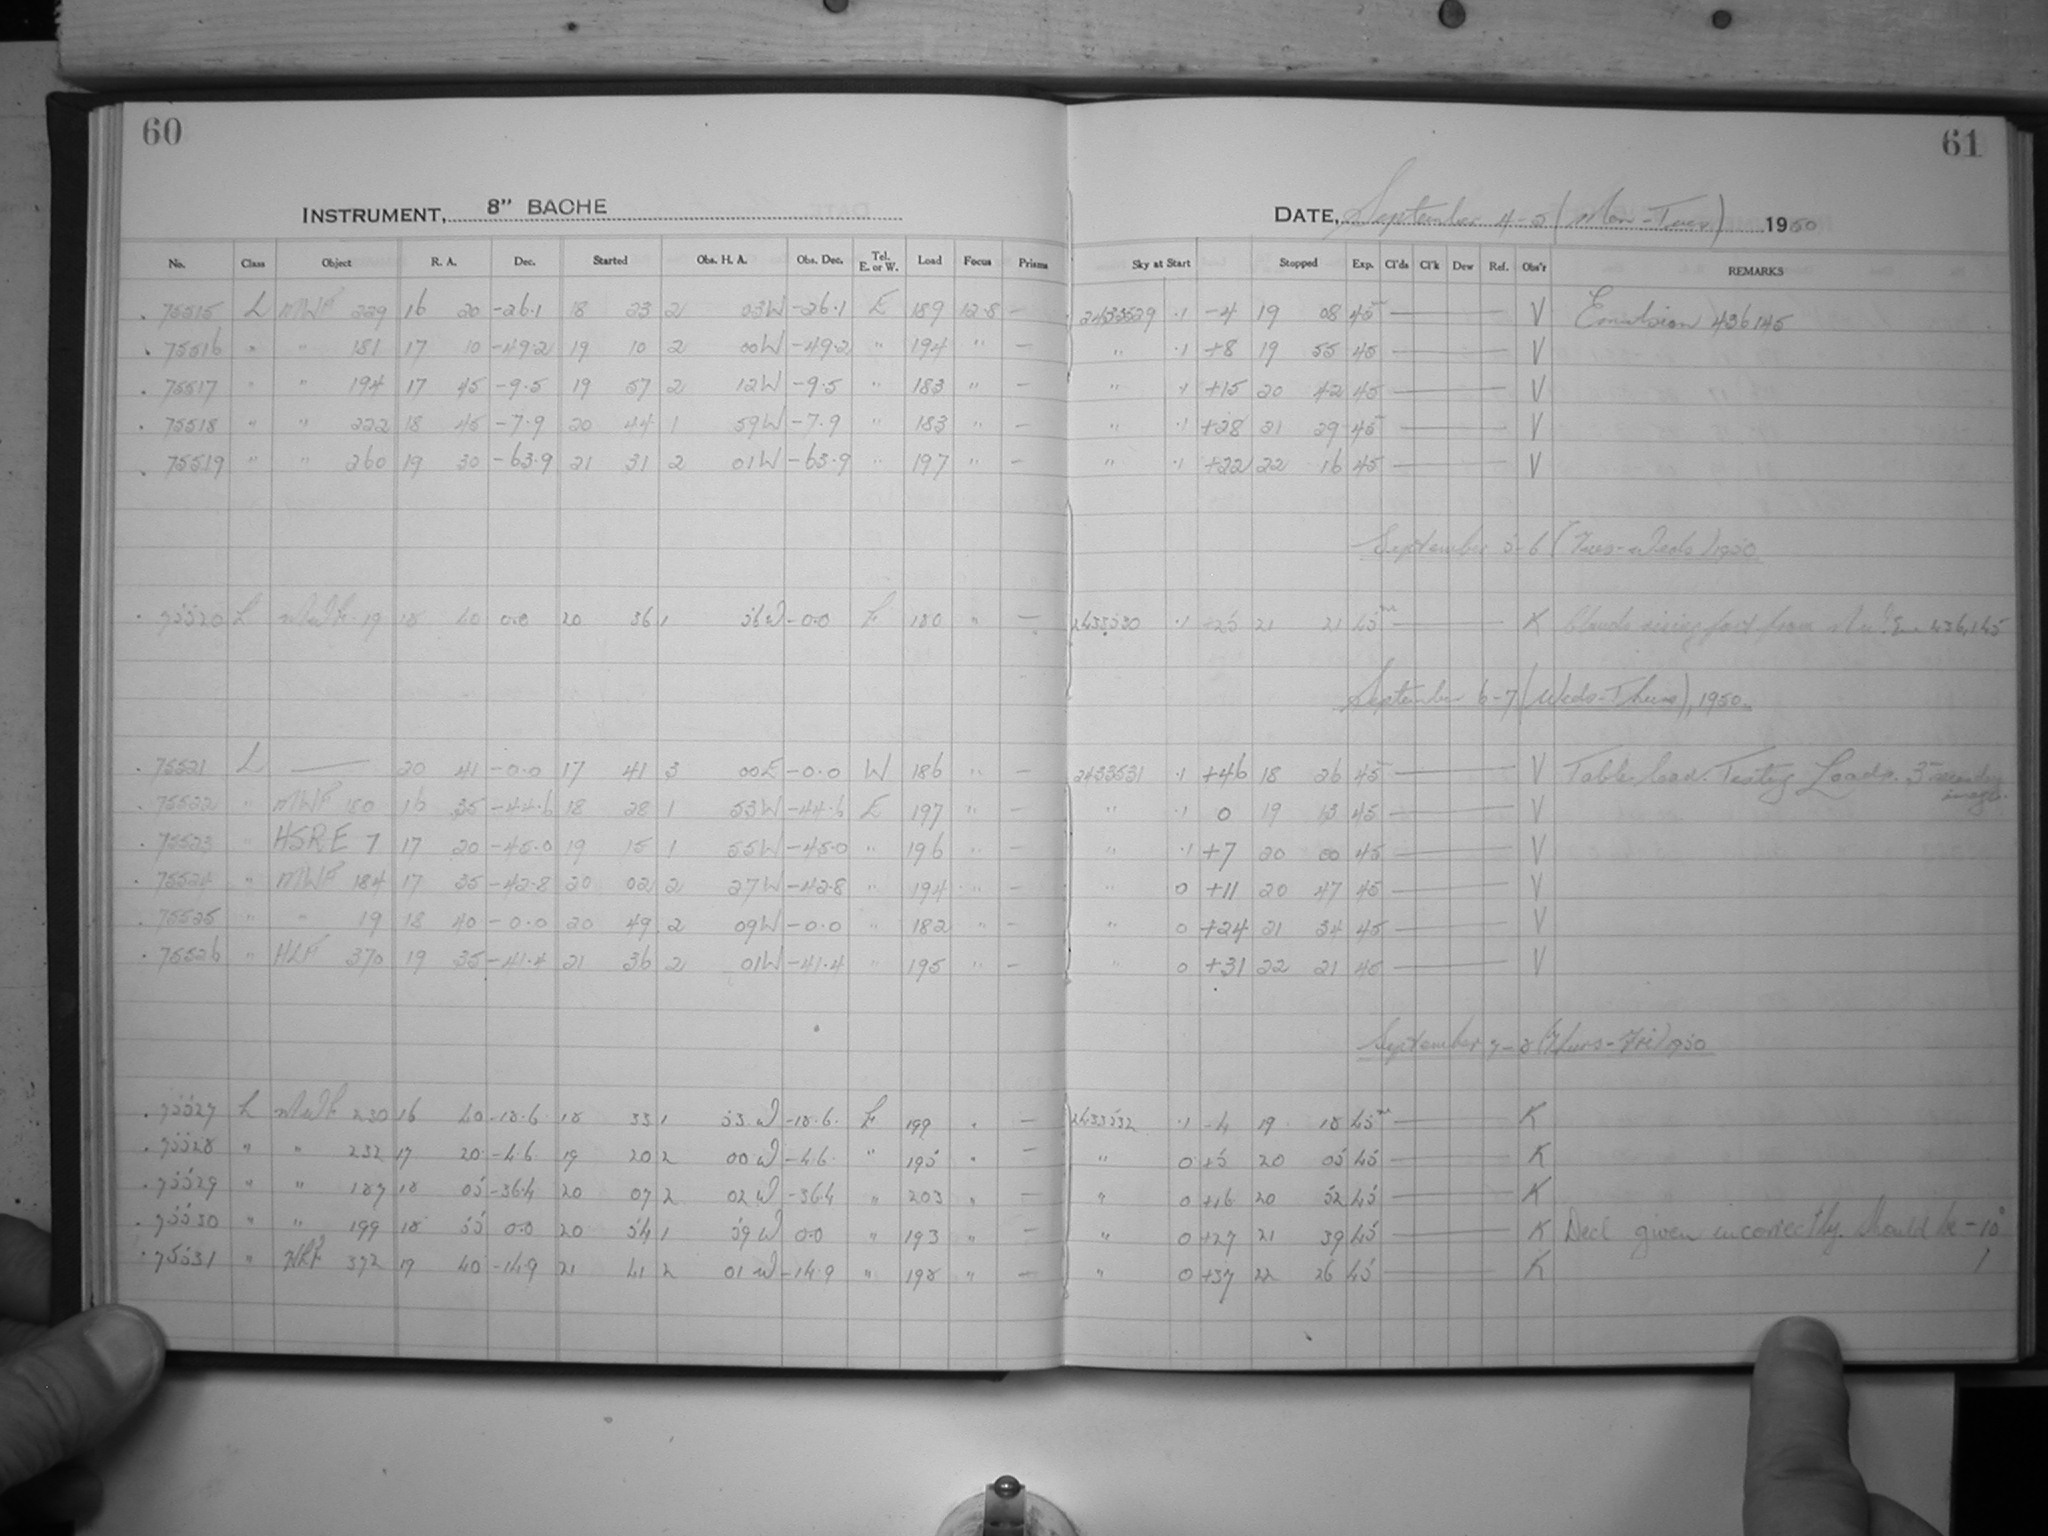 60
61
INSTRUMENT, 8" BACHE
DATE, September 4-5 (Mon-Tues) 1950
No. Class Object R. A. Dec. Started Obs. H. A. Obs. Dec. Tel. E. or W. Load Focus Prisms Sky at Start Stopped Exp. Cl'ds Cl'k Dew Ref. Obs'r REMARKS
75515 L MWF 229 16 20 -26.1 18 23 2 03W -26.1 E 189 12.8 — 2433529 .1 -4 19 08 45m V Emulsion 436145
75516 " " 181 17 10 -49.2 19 10 2 00W -49.2 " 194 " — " .1 +8 19 55 45 V
75517 " " 194 17 45 -9.5 19 57 2 12W -9.5 " 183 " — " .1 +15 20 42 45 V
75518 " " 222 18 45 -7.9 20 44 1 59W -7.9 " 183 " — " .1 +28 21 29 45 V
75519 " " 260 19 30 -63.9 21 31 2 01W -63.9 " 197 " — " .1 +22 22 16 45 V
September 5-6 (Tues-Weds) 1950
75520 L MWF 19 18 40 0.0 20 36 1 56W -0.0 E 180 " — 2433530 .1 +25 21 21 45m K Clouds rising fast from Em 436,145
September 6-7 (Weds-Thurs), 1950
75521 L — 20 41 -0.0 17 41 3 00E -0.0 W 186 " — 2433531 .1 +46 18 26 45 V Table load. Testing Loads. secondary images
75522 " MWF 180 16 35 -44.6 18 28 1 53W -44.6 E 197 " — " .1 0 19 13 45 V
75523 " HSRE 7 17 20 -45.0 19 15 1 55W -45.0 " 196 " — " .1 +7 20 00 45 V
75524 " MWF 184 17 35 -42.8 20 02 2 27W -42.8 " 194 " — " 0 +11 20 47 45 V
75525 " " 19 18 40 -0.0 20 49 2 09W -0.0 " 182 " — " 0 +24 21 34 45 V
75526 " HLF 370 19 35 -41.4 21 36 2 01W -41.4 " 195 " — " 0 +31 22 21 45 V
September 7-8 (Thurs-Fri) 1950
75527 L MWF 230 16 40 -18.6 18 33 1 53W -18.6 E 199 " — 2433532 .1 -4 19 18 45m K
75528 " " 232 17 20 -4.6 19 20 2 00W -4.6 " 195 " — " 0 +5 20 05 45 K
75529 " " 187 18 05 -36.4 20 07 2 02W -36.4 " 203 " — " 0 +16 20 52 45 K
75530 " " 199 18 55 0.0 20 54 1 59W 0.0 " 193 " — " 0 +27 21 39 45 K Decl given incorrectly. Should be -10°
75531 " HLF 372 19 40 -14.9 21 41 2 01W -14.9 " 198 " — " 0 +37 22 26 45 K